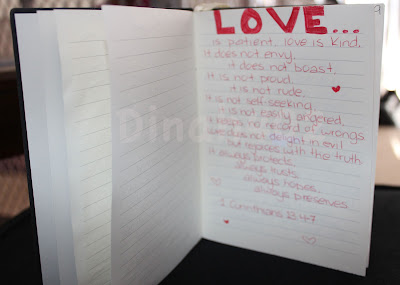 LOVE...
is patient, love is kind.
it does not envy,
it does not boast.
it is not proud.
it is not rude.
It is not self-seeking
it is not easily angered.
it keeps no record of wrongs
Love does not delight in evil
but rejoices with the truth
It always protects
always trusts
always hopes
always preserves
1 Corinthians 13 4-7